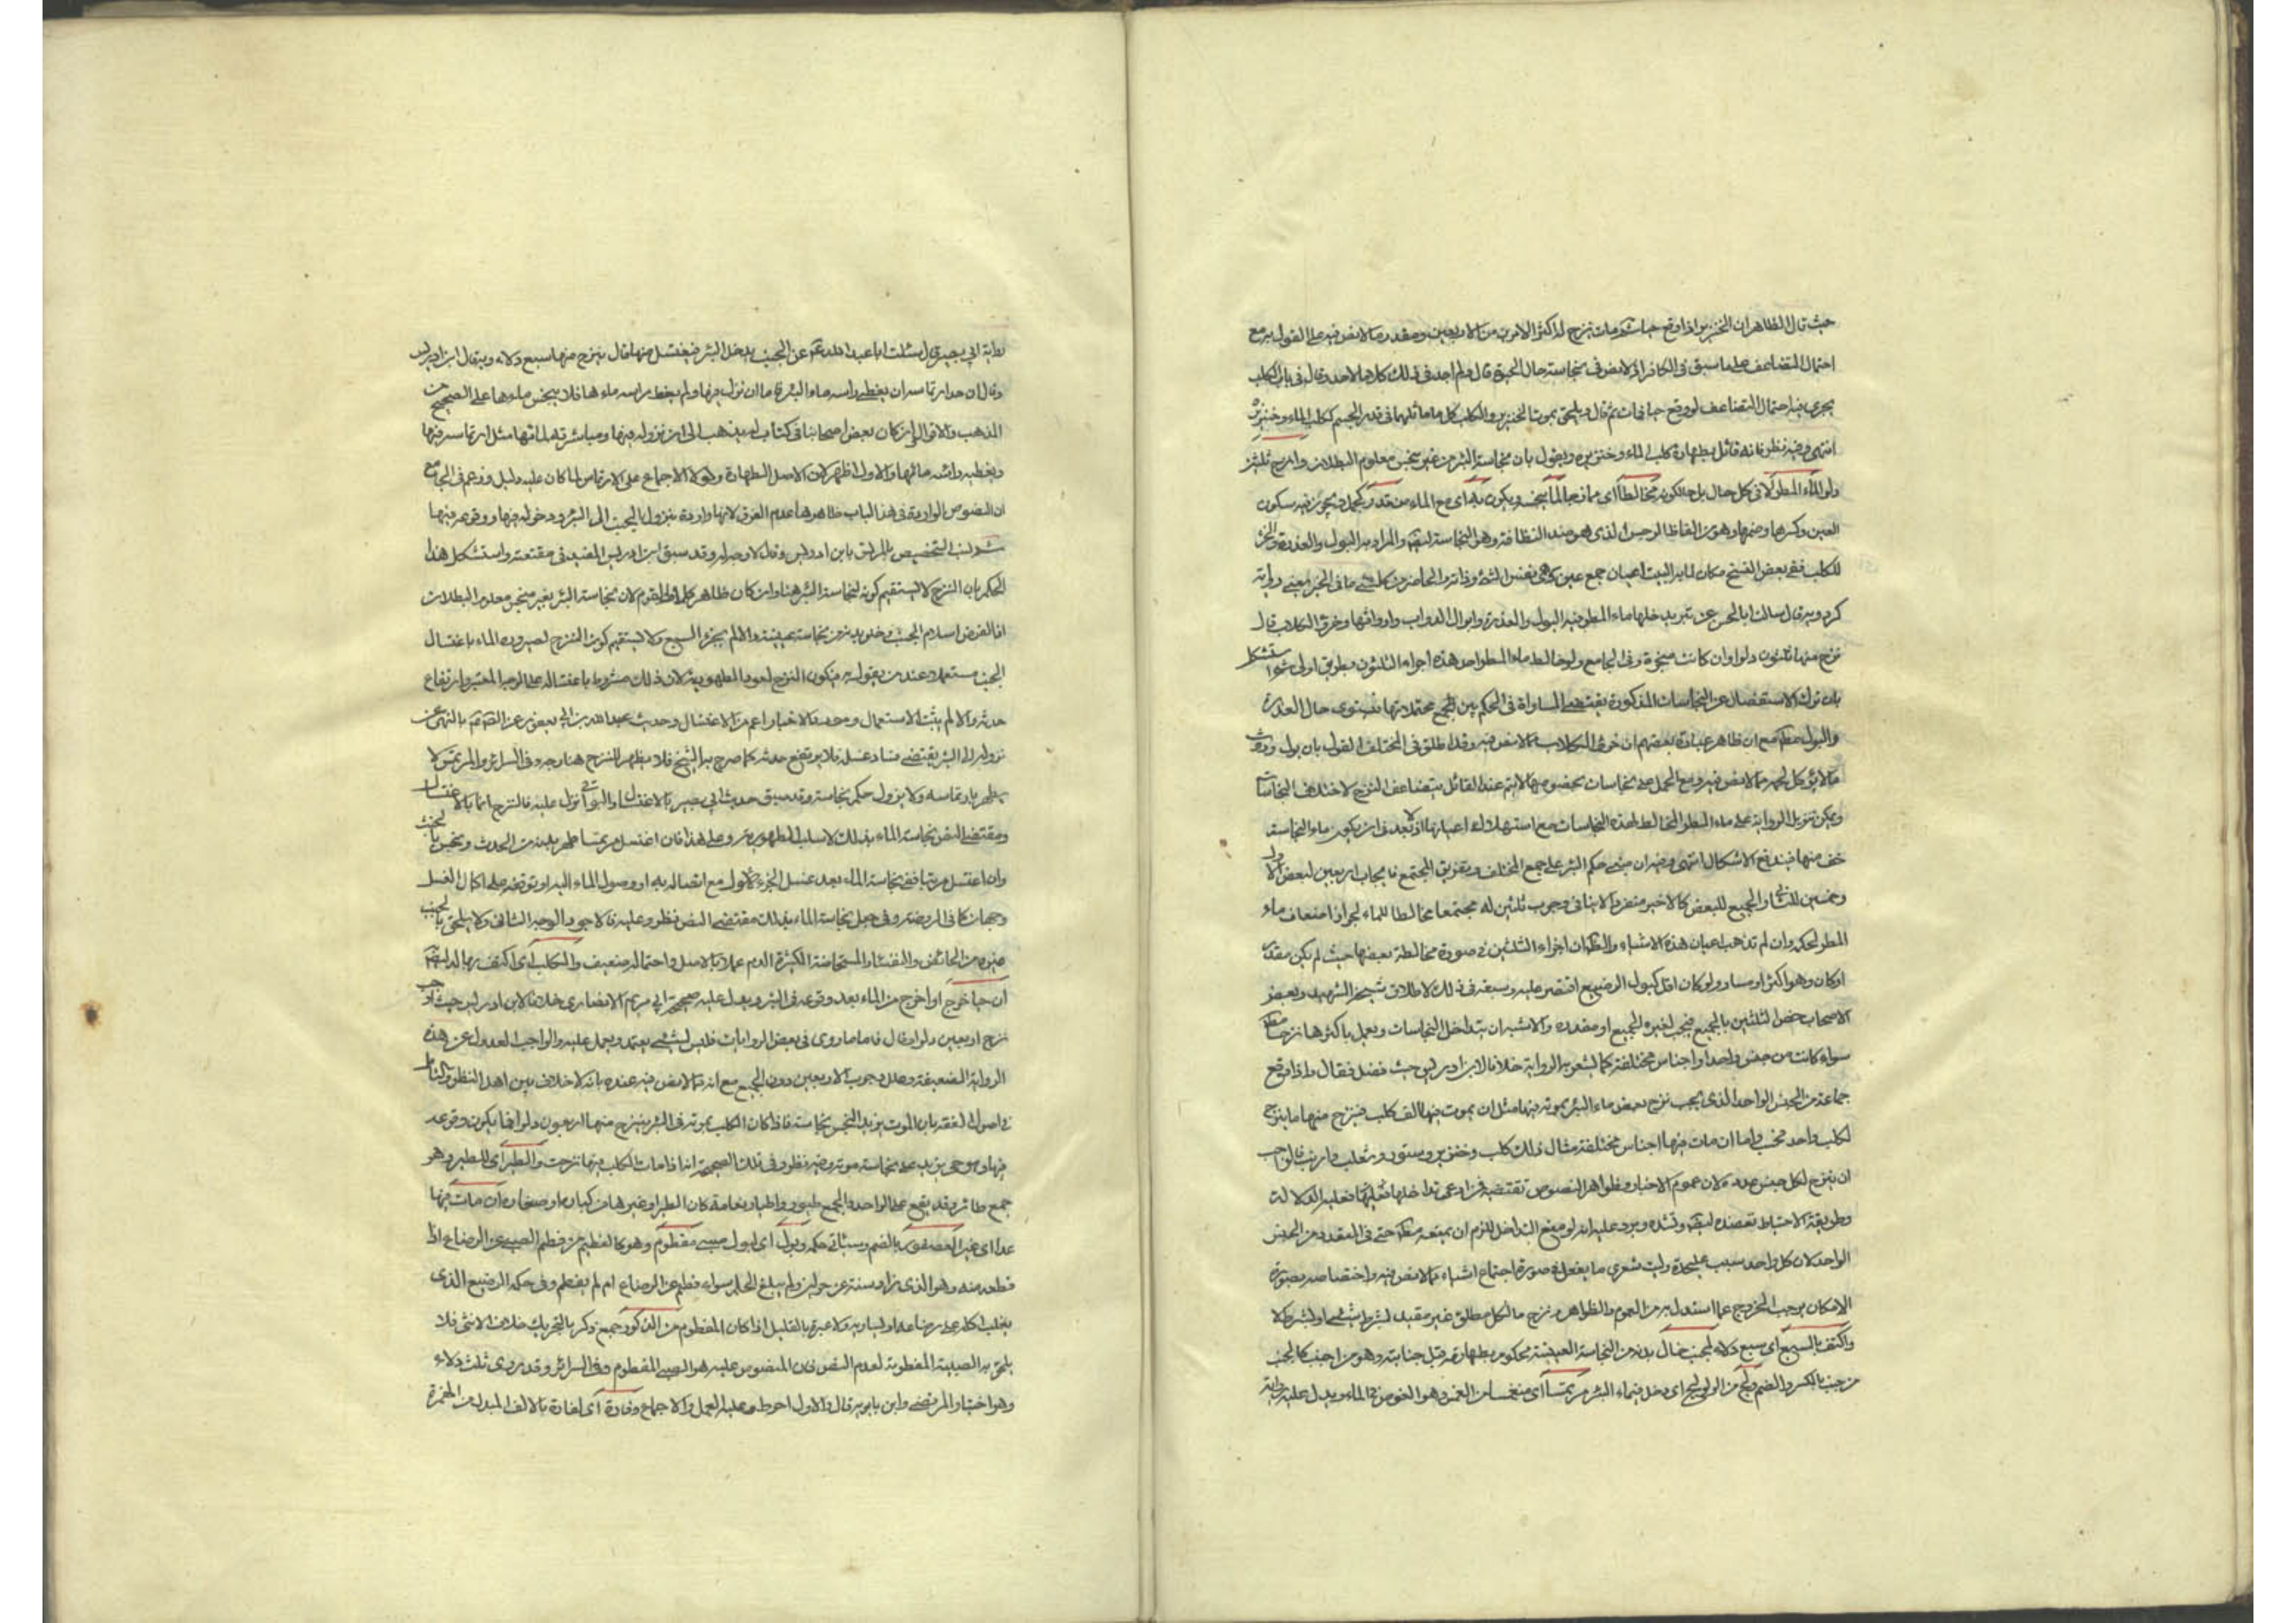 حيث قال الظاهر ان الخنزير اذا وقع حيا ثم مات نزح له اكثر الامرين من الاربعين ومقدر ما لا نص فيه على القول به مع
احتمال التضاعف على ما سبق في الكافر اذ لا نص في نجاسته حال الحيوة قال ولم اجد في ذلك كلاما لاحد وقال في باب الكلب
يجرى فيه احتمال التضاعف لو وقع حيا فمات ثم قال ويلحق بموت الخنزير والكلب كل ما ماثلهما في قدر الجسم ككلب الماء وخنزيره
انتهى وفيه نظر فانه قائل بطهارة كلب الماء وخنزيره ويقول بان نجاسة البئر من غير منجس معلوم البطلان وانزح ثلثين
دلوا لماء المطر لا في كل حال بل حالكونه مخالطا اى ممازجا لما ينجسه ويكون به اى مع الماء من قذر يجوز فيه سكون
العين وكسرها وضمها وهو من الفاظ الرجس الذى هو ضد النظافة وهو النجاسة والمراد به البول والعذرة وخرء
للكلب ففي بعض النسخ مكان لما به البيت اعيان جمع عين بمعنى نفس الشئ وذاته والحاصل كل ما في الخبر يعنى رواية
كردويه قال سالت ابا الحسن عن بئر يدخلها ماء المطر فيه البول والعذرة وابوال الدواب وارواثها وخرء الكلاب قال
ينزح منها ثلثون دلوا وان كانت مبخرة وفي الجامع ولو خالط ماء المطر احد هذه اجزاه الثلثون بطريق اولى ثم استشكل
بان ترك الاستفصال عن النجاسات المذكورة يقتضى المساواة في الحكم بين جميع محتملاتها فيستوى حال العذرة
والبول مع ان ظاهر عبارة بعضهم ان خرء الكلاب مما لا نص فيه وقد اطلق في المختلف القول بان بول وروث
ما لا يؤكل لحمه مما لا نص فيه ومع الحمل على نجاسات بخصوصها لا يتم عند القائل بتضاعف النزح لاختلاف النجاسات
ويمكن تنزيل الرواية على ماء المطر المخالط لهذه النجاسات مع استهلاك اعيانها اذ لا بعد في ان يكون ماء النجاسة
اخف منها فيندفع الاشكال انتهى وفيه ان مبنى حكم البئر على جمع المختلف وتفريق المجتمع فايجاب اربعين لبعض كالاول
وخمسين للثاني والجميع للبعض كالاخير منفردا لا ينافي وجوب ثلثين له مجتمعا مخالطا للماء لجواز اضعاف ماء
المطر لحكمه وان لم تذهب اعيان هذه الاشياء والظاهر ان اجزاء الثلثين في صورة مخالطة بعضها حيث لم يكن مقدر
او كان وهو اكثر او مساو ولو كان اقل كبول الرضيع اقتصر عليه وسبقه في ذلك لاطلاق شيخنا الشهيد وبعض
الاصحاب خص الثلثين بالجميع فيجب لغيره الجميع او مقدره والاشبه ان يتداخل النجاسات ويعمل باكثرها نزحا مطلقا
سواء كانت من جنس واحد او اجناس مختلفة كما يشعر به الرواية خلافا لابن ادريس حيث فصل فقال واذا وقع
جماعة من الجنس الواحد الذى يجب نزح بعض ماء البئر بموته فيها مثل ان يموت فيها الف كلب فينزح منها ما ينزح
لكلب واحد فحسب واما ان مات فيها اجناس مختلفة مثال ذلك كلب وخنزير وسنور وثعلب وارنب فالواجب
ان ينزح لكل جنس عدده لان عموم الاخبار وظواهر النصوص تقتضيه فمن ادعى تداخلها فعليه الدلالة
وطريقة الاحتياط تعضده وتشده ويرد عليه انه لو منع التداخل للزم ان يمنعه مطلقا حتى في المقدر من الجنس
الواحد لان كل واحد سبب عليحدة وليت شعرى ما يفعل في صورة اجتماع اشياء مما لا نص فيه واختصاصه بصورة
الامكان يوجب الخروج عما استدل به من العموم والظواهر ونزح ما لكل مطلق غير مقيد بشرط شئ او بشرط لا
واكتف بالسبع اى سبع دلاء لجنب خال بدنه من النجاسة العينية محكوم بطهارته قبل جنابته وهو من اجنب كالجنب
من جنب بالكسر والضم ولج من الولوج اى دخل في ماء البئر مرتمسا اى منغمسا من الغمس وهو الغوص في الماء ويدل عليه رواية
رواية ابي بصير قال سئلت ابا عبد الله عن الجنب يدخل البئر فيغتسل منها قال ينزح منها سبع دلاء وبه قال ابن ادريس
وقال ان حد ارتماسه ان يغطى راسه ماء البئر فاما ان نزل فيها ولم يغط راسه ماءها فلا ينجس ماءها على الصحيح من
المذهب والاقوال وان كان بعض اصحابنا في كتاب له يذهب الى ان نزوله فيها ومباشرته لمائها مثل ارتماسه فيها
وتغطية رائسه مائها والاول اظهر لان الاصل الطهارة ولولا الاجماع على الارتماس لما كان عليه دليل وزعم في الجامع
ان النصوص الواردة في هذا الباب ظاهرها عدم الفرق لانها واردة بنزول الجنب الى البئر ودخوله فيها ووقوعه فيها
ثم نسب التخصيص بالمرتمس بابن ادريس وقال لا وجه له وقد سبق ابن ادريس المفيد في مقنعته واستشكل هذا
الحكم بان النزح لا يستقيم كونه لنجاسة البئر هنا وان كان ظاهر كلام القوم لان نجاسة البئر بغير منجس معلوم البطلان
اذ الفرض اسلام الجنب وخلو بدنه من نجاسة عينية والا لم يجزء السبع ولا يستقيم كون النزح لصيرورة الماء باغتسال
الجنب مستعملا عند من يقول به فيكون النزح لعود الطهورية لان ذلك مشروط باغتساله على الوجه المعتبر وارتفاع
حدثه والا لم يثبت الاستعمال ومحصل الاخبار اعم من الاغتسال وحديث عبدالله بن ابي يعفور عن الصادق بالنهى عن
نزوله الى البئر يقتضى فساد غسله فلا يرتفع حدثه كما صرح به الشيخ فلا يظهر للنزح هنا وجه وفي السرائر والمرتمس لا
يطهر بارتماسه ولا يزول حكم نجاسته وقد سبق حديث ابي بصير بالاغتسال والبواقي تنزل عليه فالنزح انما بالاغتسال
ومقتضى النص نجاسة الماء بذلك لا سلب الطهورية وعلى هذا فان اغتسل مرتمسا طهر بدنه من الحدث ونجس بالخبث
وان اغتسل مرتبا ففي نجاسة الماء بعد غسل الجزء الاول مع اتصاله به او وصول الماء اليه او توقفه على اكمال الغسل
وجهان كما في الروضة وفي جعل نجاسة الماء بذلك مقتضى النص نظر وعليه فالاجود الوجه الثاني ولا يلحق بالجنب
غيره من الحائض والنفساء والمستحاضة الكثيرة الدم عملا بالاصل واحتماله ضعيف والكلب اى اكتف بها له
ان حيا خرج او اخرج من الماء بعد وقوعه في البئر ويدل عليه صحيحة ابي مريم الانصارى خلافا لابن ادريس حيث اوجب
نزح اربعين دلوا وقال فاما ما روى في بعض الروايات فليس بشئ يعتمد ويعمل عليه والواجب العدول عن هذه
الرواية الضعيفة وعلل وجوب الاربعين دون الجميع مع انه مما لا نص فيه عنده بانه لا خلاف بين اهل النظر والتامل
في اصول الفقه بان الموت يزيد النجس نجاسة فاذا كان الكلب بموته في البئر ينزح منها اربعون دلوا فما يكون وقوعه
فيها وهو حى يزيد على نجاسة موته وفيه نظر وفي ذلك الصحيحة اذا مات الكلب فيها نزحت والطير اى للطير وهو
جمع طائر وقد يقع على الواحد والجمع طيور واطيار نعامة كان الطير او غيرها من كباره او صغاره ان مات فيها
عدا اى غير العصفور بالضم وسيأتى حكمه وبول اى لبول صبى مفطوم وهو كالفطيم من فطم الصبى عن الرضاع اذا
قطعه منه وهو الذى زاد سنه عن حولين ولم يبلغ الحلم سواء فطم عن الرضاع ام لم يفطم وفي حكمه الرضيع الذى
يغلب اكله على رضاعه او يساويه ولا عبرة بالقليل اذا كان المفطوم من الذكور جمع ذكر بالتحريك خلاف الانثى فلا
يلحق به الصبية المفطومة لعدم النص فان المنصوص عليه هو الصبى المفطوم وفي السرائر وقد روى ثلث دلاء
وهو اختيار المرتضى وابن بابويه قال والاول احوط وعليه العمل والاجماع وفارة اى لفارة بالالف المبدل من الهمزة